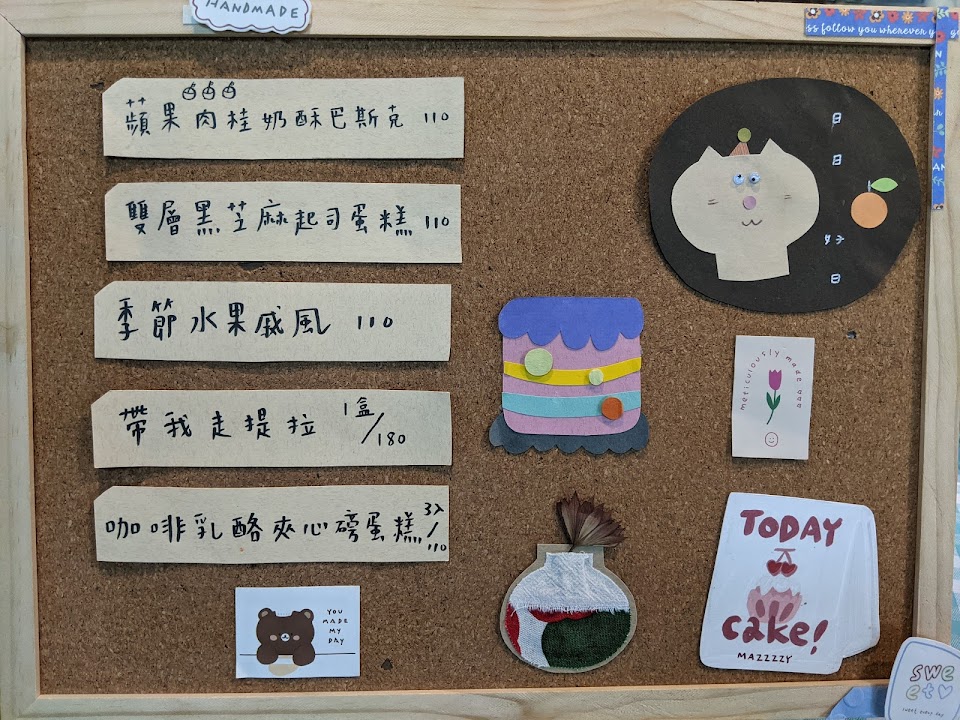 HANDMADE
ss follow you wherever y
蘋果肉桂奶酥巴斯克 110
雙層黑芝麻起司蛋糕 110
季節水果戚風 110
帶我走提拉 1盒/180
咖啡乳酪夾心磅蛋糕 3入/110
日
日
好
日
meticulously made
YOU
MADE
MY
DAY
TODAY
cake!
MAZZZZY
swe
et